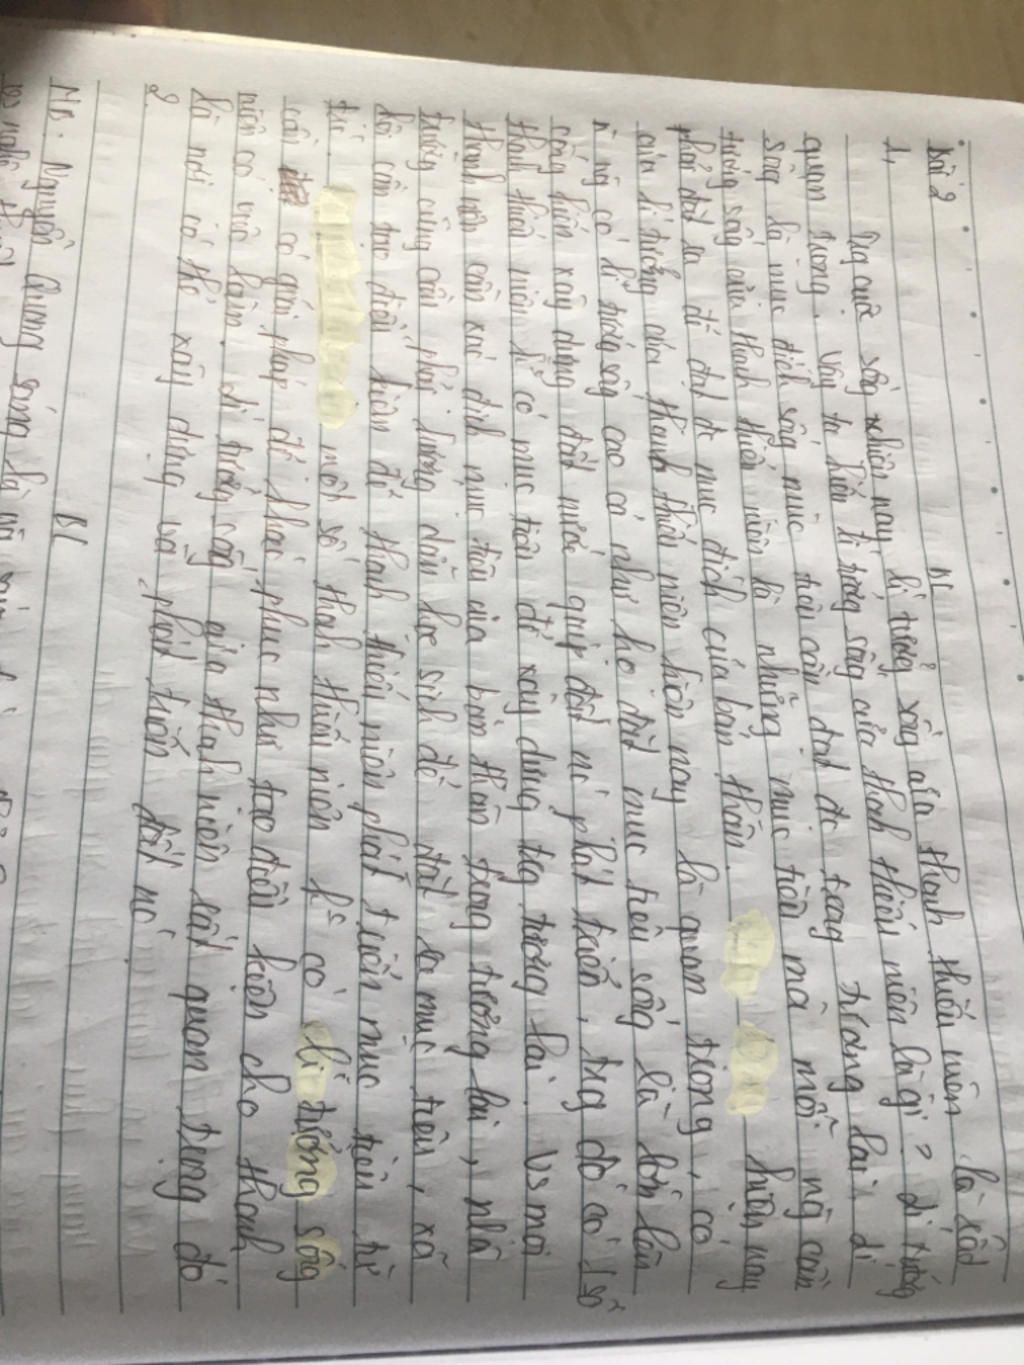 Bài 2
1, Bl
Trg cuộc sống hiện nay lí tưởng sống của thanh thiếu niên là rất
quan trọng. Vậy ta hiểu lí tưởng sống của thanh thiếu niên là gì? Lí tưởng
sống là mục đích sống mục tiêu cần đạt đc trong tương lai. Lí
tưởng sống của thanh thiếu niên là những mục tiêu mà mỗi ng cần
phải đặt ra để đạt đc mục đích của bản thân. hiện nay
của lí tưởng của thanh thiếu niên hiện nay là quan trọng, có
n ng có lí tưởng sống cao cả như họ đặt mục tiêu sống là lớn lên
cống hiến xây dựng đất nước giúp đất nc phát triển, trg đó có 1 số
thanh thiếu niên k có mục tiêu để xây dựng trg tương lai. Vs mỗi
thanh niên cần xác định mục tiêu của bản thân trong tương lai, nhà
trường cũng cần phải hướng dẫn học sinh để đặt ra mục tiêu, xã
hội cần tạo điều kiện để thanh thiếu niên phát triển mục tiêu từ
một số thanh thiếu niên k có lí tưởng sống
cần có giải pháp để khắc phục như tạo điều kiện cho thanh
niên có việc làm. Lí tưởng sống của thanh niên rất quan trọng đó
là nơi có thể xây dựng và phát triển đất nc.
2,
Bl
MB: Nguyễn Quang Sáng là